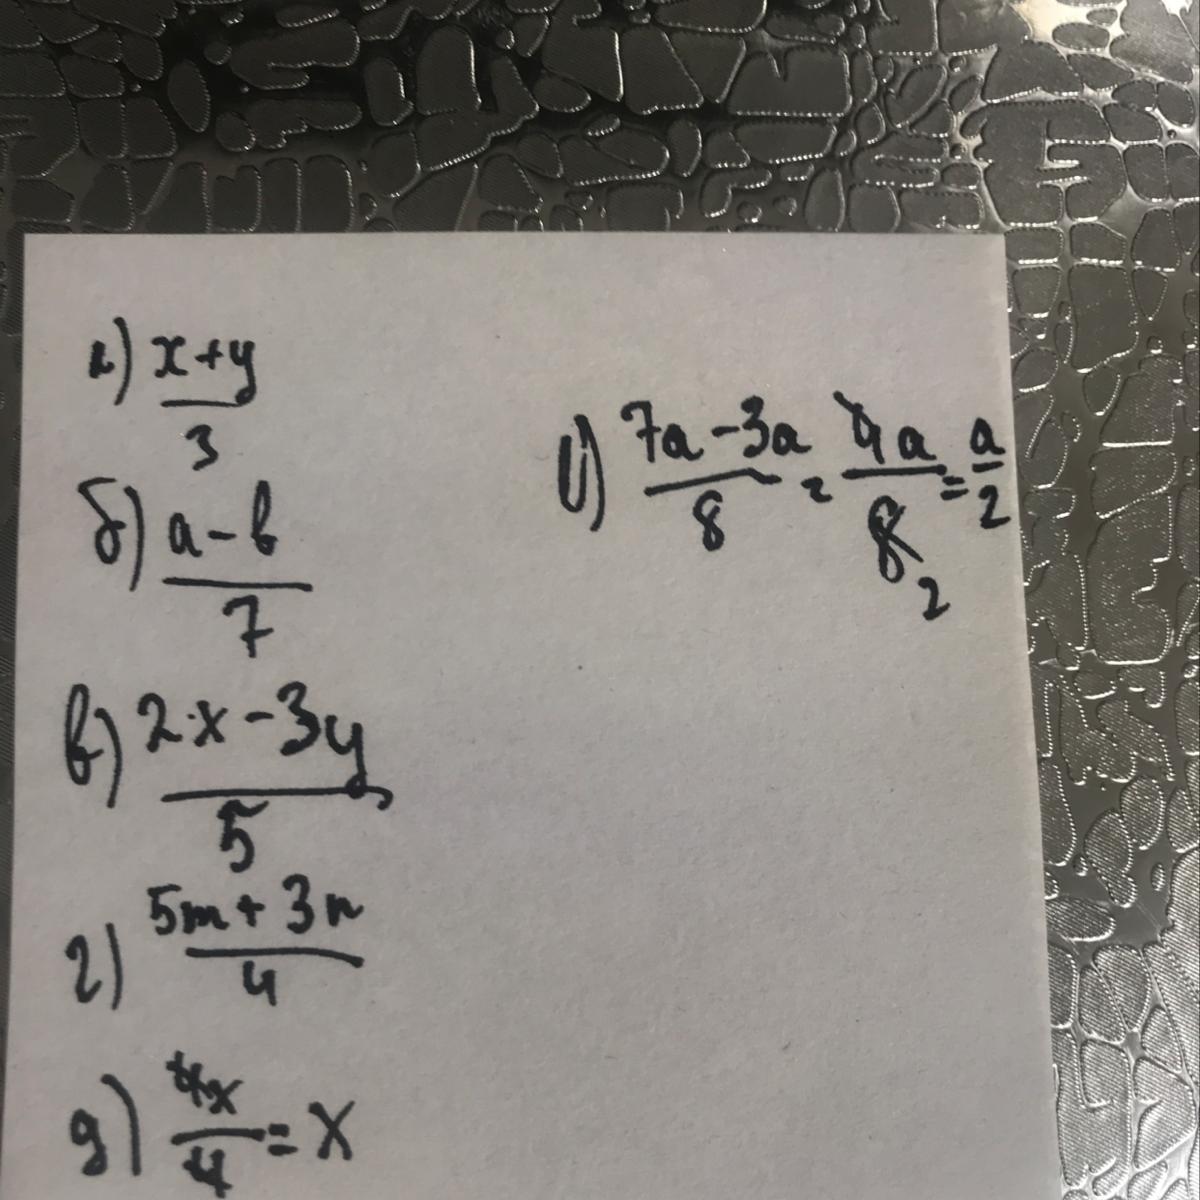 а) x+y
3
б) a-b
7
в) 2·x-3y
5
г) 5m+3n
4
д) 4x = x
4
е) 7a-3a = 4a = a
8 8 2
2